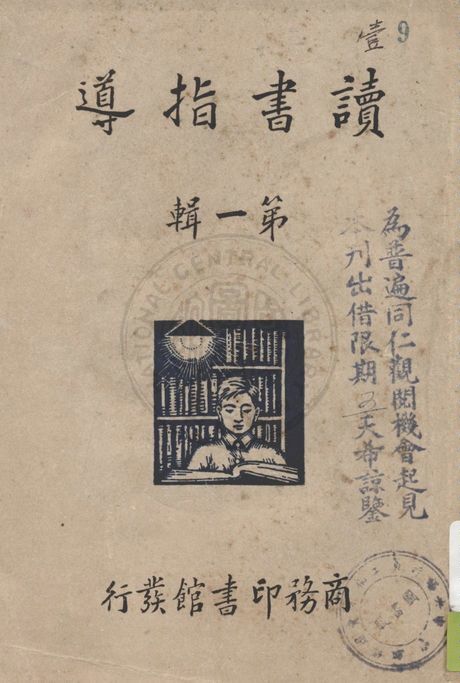 壹 9
讀書指導
第一輯
為普遍同仁觀閱機會起見
本刊出借限期 天希諒鑒
NATIONAL CENTRAL LIBRARY
商務印書館發行